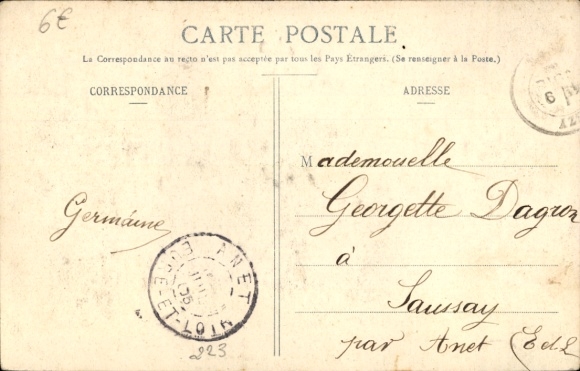 6€
CARTE POSTALE
La Correspondance au recto n'est pas acceptée par tous les Pays Étrangers. (Se renseigner à la Poste.)
CORRESPONDANCE
ADRESSE
Mademoiselle
Georgette Dagron
à
Saussay
par Anet (E et L
Germaine
ANET
EURE-ET-LOIR
223